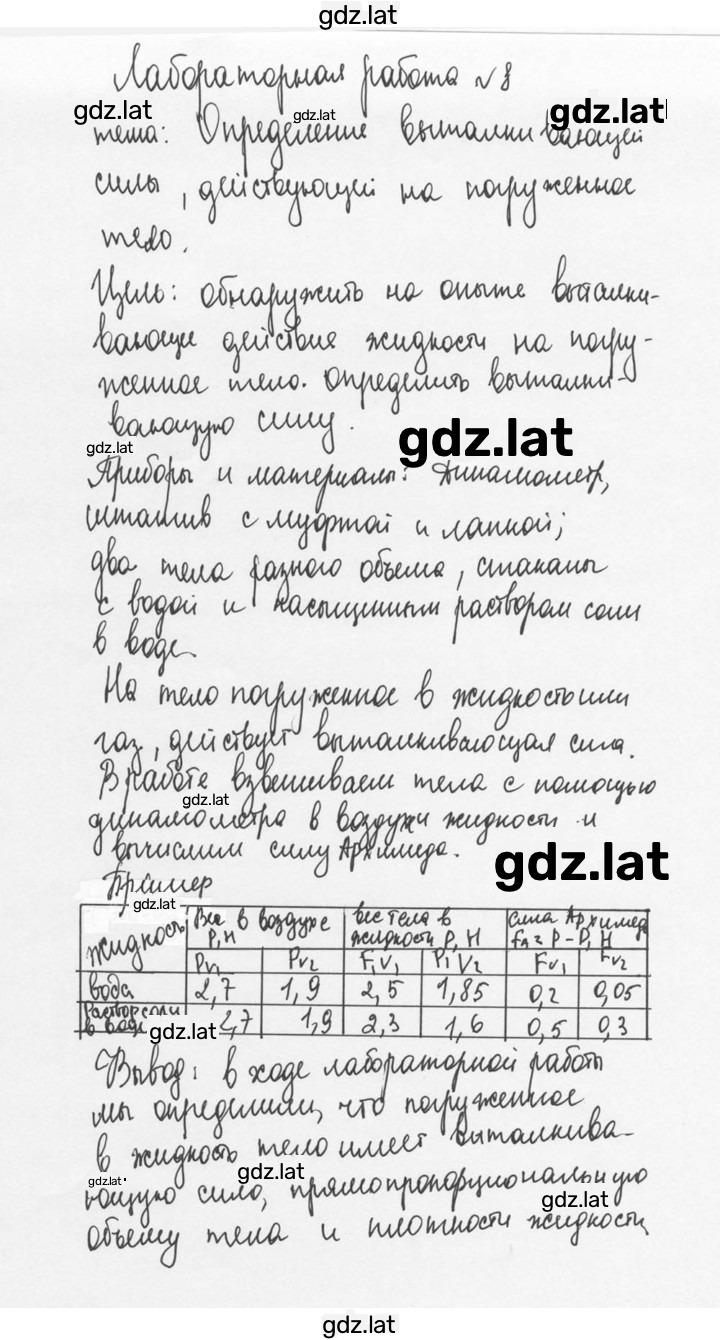 gdz.lat
Лабораторная работа №8
gdz.lat gdz.lat gdz.lat
тема: Определение выталкивающей
силы, действующей на погруженное
тело.
Цель: обнаружить на опыте выталки-
вающее действие жидкости на погру-
женное тело. Определить выталки-
вающую силу.
gdz.lat gdz.lat
Приборы и материалы: Динамометр,
штатив с муфтой и лапкой;
два тела разного объема, стаканы
с водой и насыщенным раствором соли
в воде.
На тело погруженное в жидкость или
газ, действует выталкивающая сила.
В работе взвешиваем тела с помощью
gdz.lat
динамометра в воздухи жидкости и
вычислим силу Архимеда.
gdz.lat
Пример
gdz.lat
жидкость Вес в воздухе P, H вес тела в жидкости P, H сила Архимеда FA = P - P, H
Pv1 Pv2 F1V1 P1V2 Fv1 Fv2
вода 2,7 1,9 2,5 1,85 0,2 0,05
Раствор соли в воде 2,7 1,9 2,3 1,6 0,5 0,3
Вывод: в ходе лабораторной работы
мы определили, что погруженное
в жидкость тело имеет выталкива-
gdz.lat gdz.lat
ющую сило, прямопропорциональную
gdz.lat
объему тела и плотности жидкости
gdz.lat